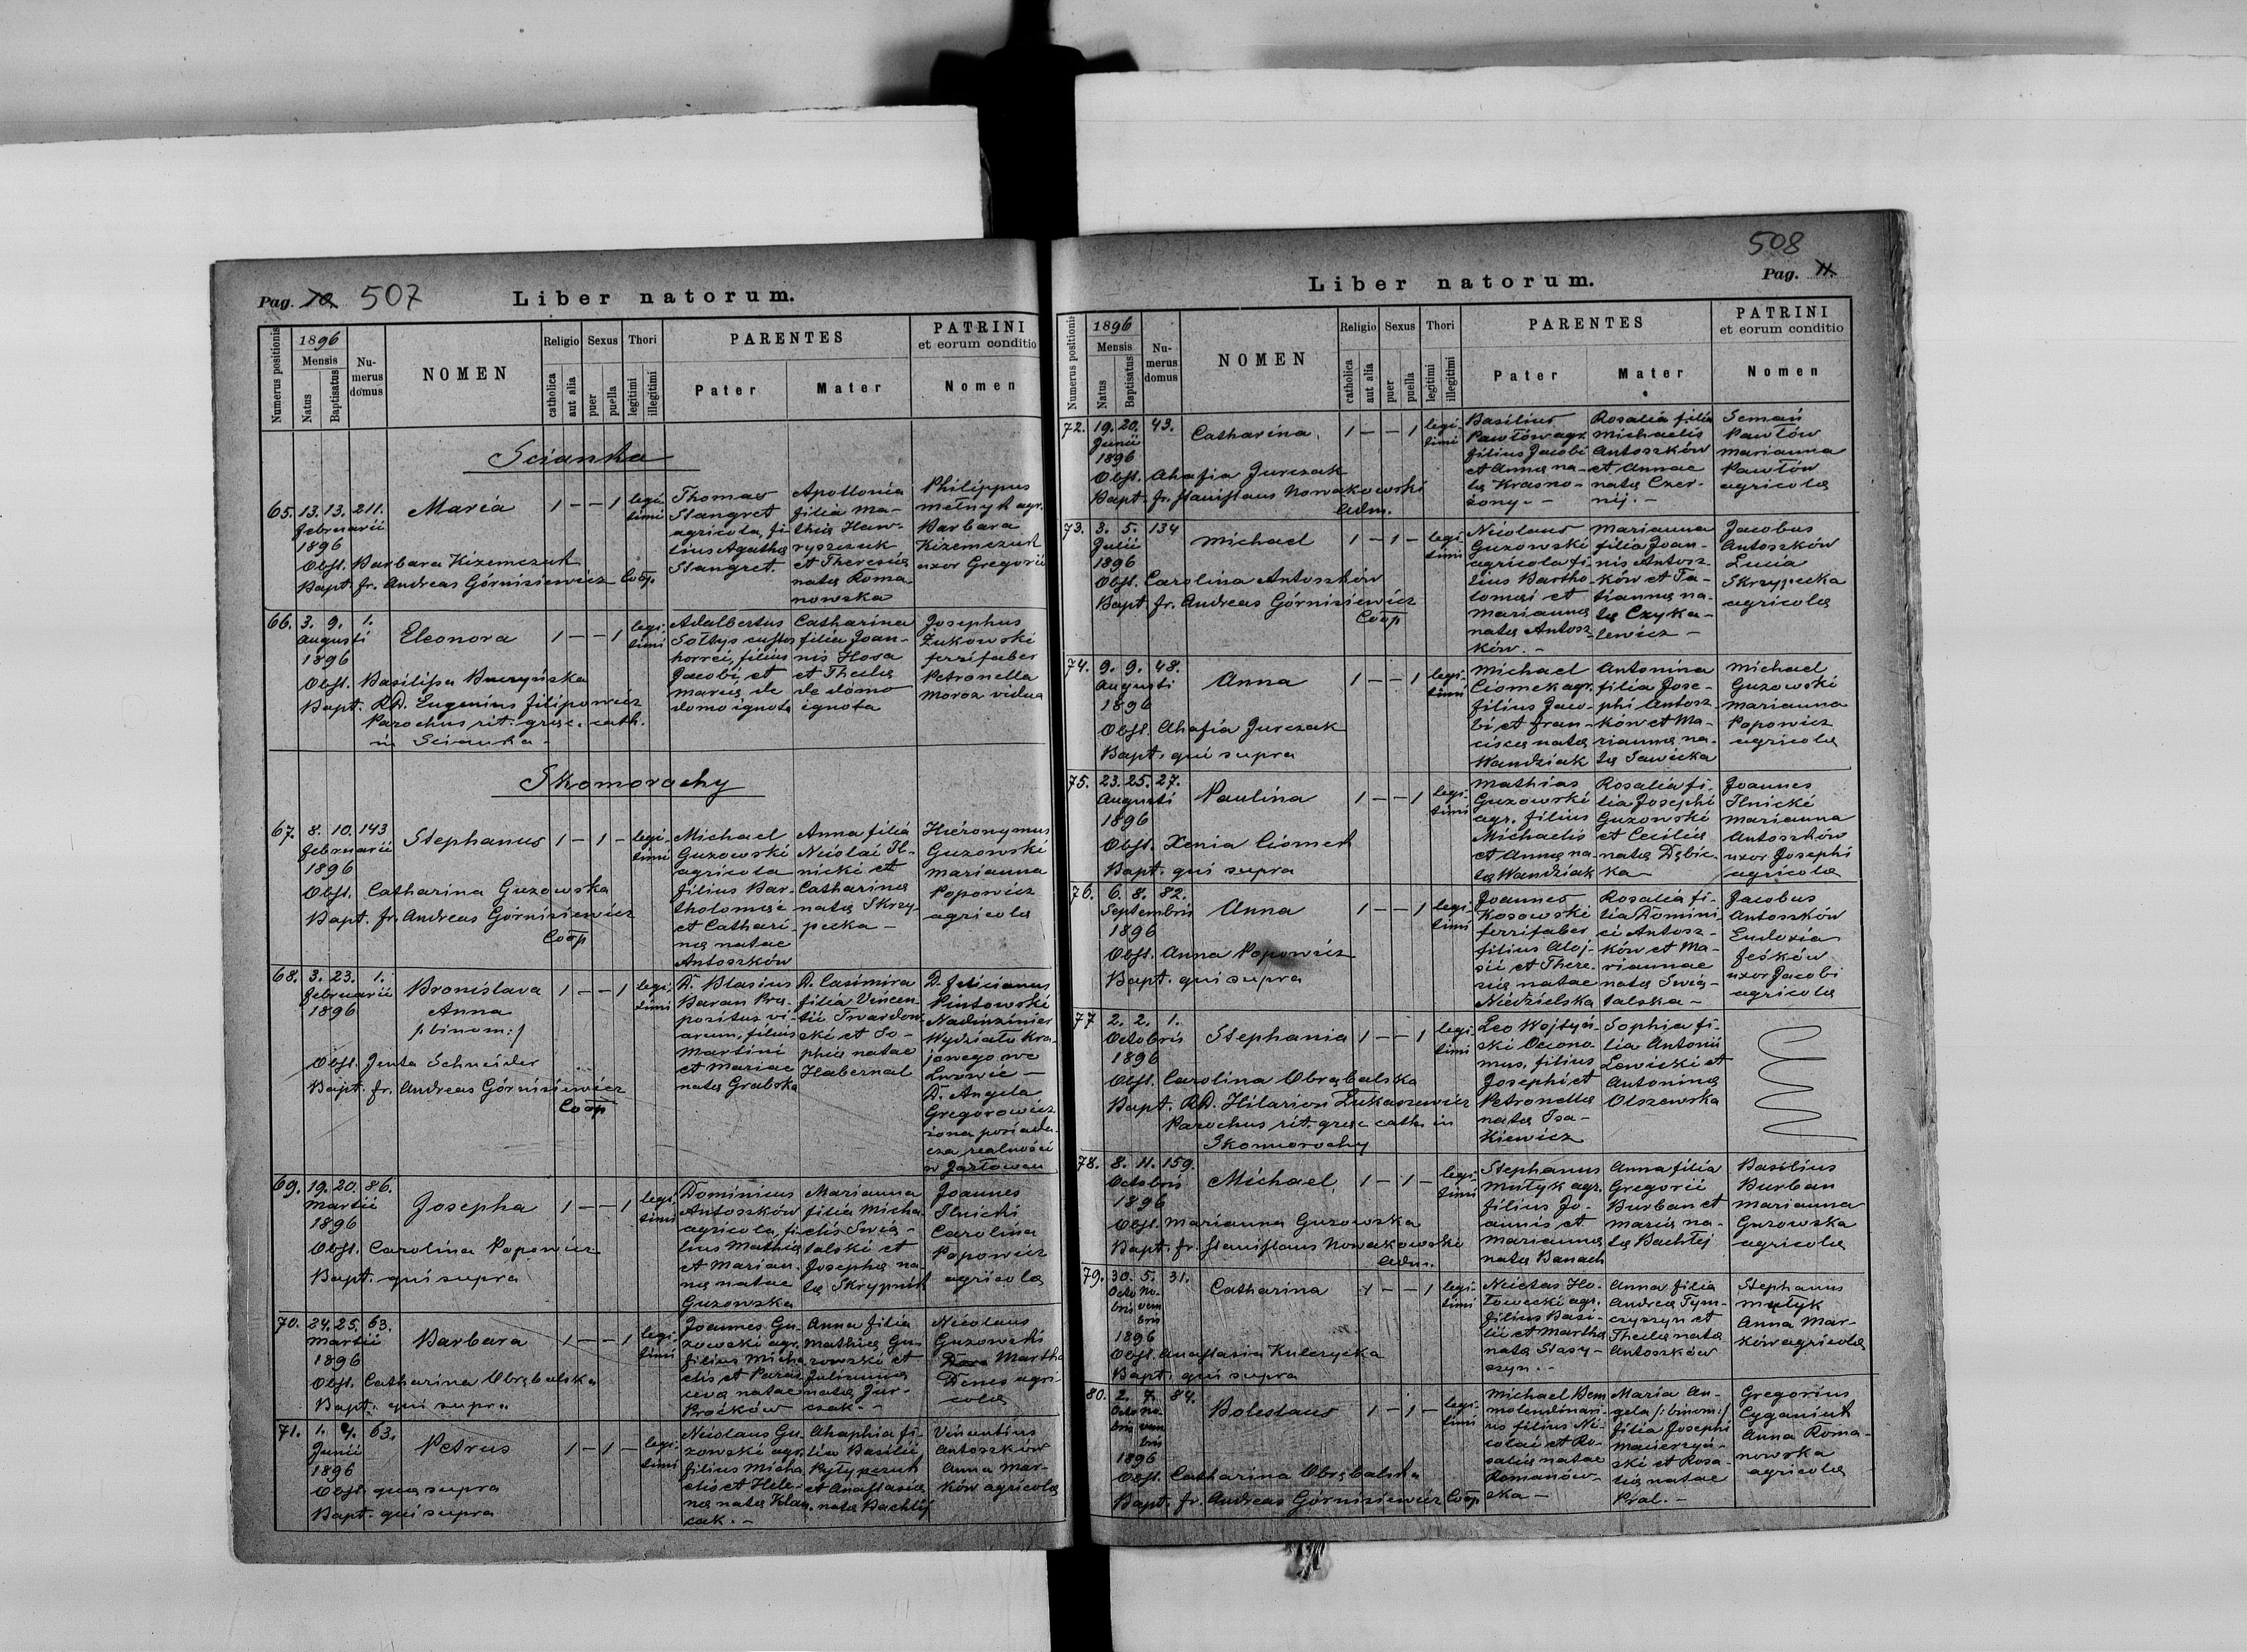 Pag. 10 507
Liber natorum.
Numerus positionis
1896
Mensis
Natus
Baptisatus
Nu-
merus
domus
NOMEN
Religio
catholica
aut alia
Sexus
puer
puella
Thori
legitimi
illegitimi
PARENTES
Pater
Mater
PATRINI
et eorum conditio
Nomen
Scianka
65. 13. 13. 211.
februarii
1896
Maria
1 – – 1
legi-
timi
Obst. Barbara Kizemczuk
Bapt. fr. Andreas Górnisiewicz Coop.
Thomas
Stangret
agricola, fi-
lius Agathæ
Stangret.
Apollonia
filia Ma-
thiæ Haw-
ryszczuk
et Theresiæ
natæ Roma
nowska
Philippus
Melnyk agr.
Barbara
Kizemczuk
uxor Gregorii
66. 3. 9. 1.
Augusti
1896
Eleonora
1 – – 1
legi-
timi
Obst. Basilissa Buczyńska
Bapt. RD. Eugenius Filipowicz
Parochus rit. græc. cath.
in Scianka –
Adalbertus
Sołtys custos
horrei, filius
Jacobi et
Mariæ de
domo ignota
Catharina
filia Joan-
nis Hosa
et Theclæ
de domo
ignota
Josephus
Żukowski
ferrifaber
Petronella
Moroz vidua
Skomorochy
67. 8. 10. 143
februarii
1896
Stephanus
1 – 1 –
legi-
timi
Obst. Catharina Guzowska
Bapt. fr. Andreas Górnisiewicz
Coop
Michael
Guzowski
agricola
filius Bar-
tholomæi
et Cathari-
næ natae
Antoszków
Anna filia
Nicolai Il-
nicki et
Catharinæ
natæ Skrzy-
pecka –
Hieronymus
Guzowski
Marianna
Popowicz
agricolæ
68. 3. 23. 1.
februarii
1896
Bronislava
Anna
/:binom:/
1 – – 1
legi-
timi
Obst. Jenta Schneider
Bapt. fr. Andreas Górnisiewicz
Coop
D. Blasius
Baran Præ-
positus vi-
arum, filius
Martini
et Mariae
natæ Grabska
D. Casimira
filia Vincen-
tii Twardow
ski et So-
phiæ natae
Habernal
D. Felicianus
Pintowski
Nadinżinier
Wydziału Kra-
jowego we
Lwowie –
D. Angela
Gregorowicz
żona posiada-
cza realności
w Jazłowcu
69. 19. 20. 86.
Martii
1896
Josepha
1 – – 1
legi
timi
Obst. Carolina Popowicz
Bapt. qui supra
Dominicus
Antoszków
agricola, fi-
lius Mathiæ
et Marian-
næ natae
Guzowska
Marianna
filia Micha
elis Swią-
talski et
Josephæ na-
tæ Skrypnik
Joannes
Ilnicki
Carolina
Popowicz
agricolæ
70. 24. 25. 63.
Martii
1896
Barbara
1 – – 1
legi-
timi
Obst. Catharina Obrąbalska
Bapt. qui supra
Joannes Gu-
zowski agr.
filius Micha
elis et Paras
cevæ natae
Procków
Anna filia
Mathiæ Gu-
zowski et
Juliannæ
natæ Jur-
czak. –
Nicolaus
Guzowski
Martha
Denes agri-
colæ
71. 1. 4. 63.
Junii
1896
Petrus
1 – 1 –
legi-
timi
Obst. quæ supra
Bapt. qui supra
Nicolaus Gu-
zowski agr.
filius Micha
elis et Hele-
næ natæ Klau
cak. –
Ahaphia fi-
lia Basilii
Pyłypczuk
et Anastasiæ
natæ Bachtij
Vincentius
Antoszków
Anna Mar-
ków agricolæ
508
Pag. 11.
Liber natorum.
Numerus positionis
1896
Mensis
Natus
Baptisatus
Nu-
merus
domus
NOMEN
Religio
catholica
aut alia
Sexus
puer
puella
Thori
legitimi
illegitimi
PARENTES
Pater
Mater
PATRINI
et eorum conditio
Nomen
72. 19. 20. 43.
Junii
1896
Catharina
1 – – 1
legi-
timi
Obst. Ahafia Jurczak
Bapt. fr. Stanislaus Nowakowski
Adm.
Basilius
Pawłów agr.
filius Jacobi
et Annæ na-
tæ Krasno-
żony. –
Rosalia filia
Michaelis
Antoszków
et Annae
natæ Czer-
nij. –
Semań
Pawłów
Marianna
Pawłów
agricolæ
73. 3. 5. 134
Julii
1896
Michael
1 – 1 –
legi
timi
Obst. Carolina Antoszków
Bapt. fr. Andreas Górnisiewicz
Coop
Nicolaus
Guzowski
agricola fi-
lius Bartho-
lomæi et
Mariannæ
natæ Antosz-
ków. –
Marianna
filia Joan-
nis Antosz-
ków et Ta-
tiannæ na-
tæ Czyka-
lewicz –
Jacobus
Antoszków
Lucia
Skrzypecka
agricolæ
74. 9. 9. 48.
Augusti
1896
Anna
1 – – 1
legi-
timi
Obst. Ahafia Jurczak
Bapt. qui supra
Michael
Ciomek agr.
filius Jaco-
bi et Fran-
ciscæ natæ
Wandziak
Antonina
filia Jose-
phi Antosz-
ków et Ma-
riannæ na-
tæ Sawicka
Michael
Guzowski
Marianna
Popowicz
agricolæ
75. 23. 25. 27.
Augusti
1896
Paulina
1 – – 1
legi-
timi
Obst. Xenia Ciomek
Bapt. qui supra
Mathias
Guzowski
agr. filius
Michaelis
et Annæ na-
tæ Wandziak
Rosalia fi-
lia Josephi
Guzowski
et Ceciliæ
natæ Dąbic-
ka –
Joannes
Ilnicki
Marianna
Antoszków
uxor Josephi
agricolæ
76. 6. 8. 82.
Septembris
1896
Anna
1 – – 1
legi-
timi
Obst. Anna Popowicz
Bapt. qui supra
Joannes
Kosowski
ferrifaber
filius Aloj-
sii et There-
siæ natae
Niedzielska
Rosalia fi-
lia Domini
ci Antosz-
ków et Ma-
riannae
natæ Swią-
talska –
Jacobus
Antoszków
Eudoxia
Feśków
uxor Jacobi
agricolæ
77 2. 2. 1.
Octobris
1896
Stephania
1 – – 1
legi-
timi
Obst. Carolina Obrąbalska
Bapt. RD. Hilarion Łukaszewicz
Parochus rit. græc cath. in
Skomorochy
Leo Wojtyń-
ski Oecono-
mus, filius
Josephi et
Petronellæ
natæ Isa-
kiewicz
Sophia fi-
lia Antonii
Lewicki et
Antoninæ
Olszewska
78. 8. 11. 159.
Octobris
1896
Michael
1 – 1 –
legi-
timi
Obst. Marianna Guzowska
Bapt. fr. Stanislaus Nowakowski
Adm.
Stephanus
Mułyk agr.
filius Jo-
annis et
Mariannæ
natæ Banach
Anna filia
Gregorii
Burban et
Mariæ na-
tæ Bachtej
Basilius
Burban
Marianna
Guzowska
agricolæ
79. 30. 5. 31.
Octo No-
bris vem
bris
1896
Catharina
1 – – 1
legi-
timi
Obst. Anastasia Kulczycka
Bapt. qui supra
Nicetas Ho-
łowecki agr.
filius Basi-
lii et Marthæ
natæ Stasy-
szyn. –
Anna filia
Andreæ Tym-
czyszyn et
Theclæ natæ
Antoszków
Stephanus
Mułyk
Anna Mar-
ków agricolæ
80. 2. 7. 84.
Octo No-
bris vem
bris
1896
Boleslaus
1 – 1 –
legi-
timi
Obst. Catharina Obrąbalska
Bapt. fr. Andreas Górnisiewicz Coop
Michael Bem
molendinari-
us filius Ni-
colai et Ro-
saliæ natae
Romanow-
ska –
Maria An-
gela /:binom:/
filia Josephi
Macierzyń-
ski et Rosa-
liæ natae
Pral. –
Gregorius
Cyganiuk
Anna Roma-
nowska
agricolæ